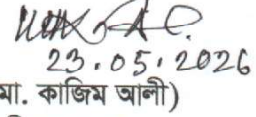 23.05.2026
মো. কাজিম আলী)